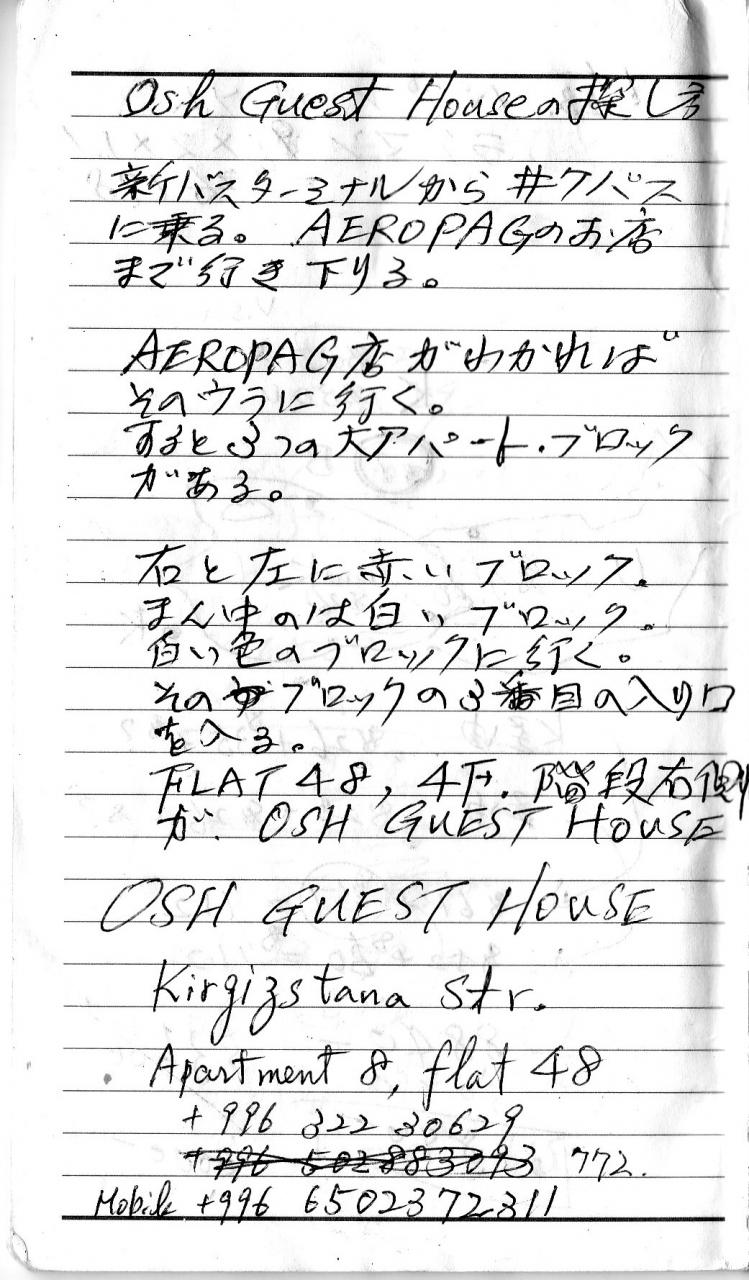 Osh Guest Houseの探し方
新バスターミナルから#7バス
に乗る。AEROPAGのお店
まで行き下りる。
AEROPAG店がわかれば
そのウラに行く。
すると3つの大アパート・ブロック
がある。
右と左に赤いブロック.
まん中のは白いブロック.
白い色のブロックに行く。
そのブロックの3番目の入り口
を入る。
FLAT 48, 4F. 階段右側
が. OSH GUEST HOUSE
OSH GUEST HOUSE
Kirgizstana Str.
Apartment 8, flat 48
+996 322 30629
+996 502 883093 772.
Mobile +996 6502372311